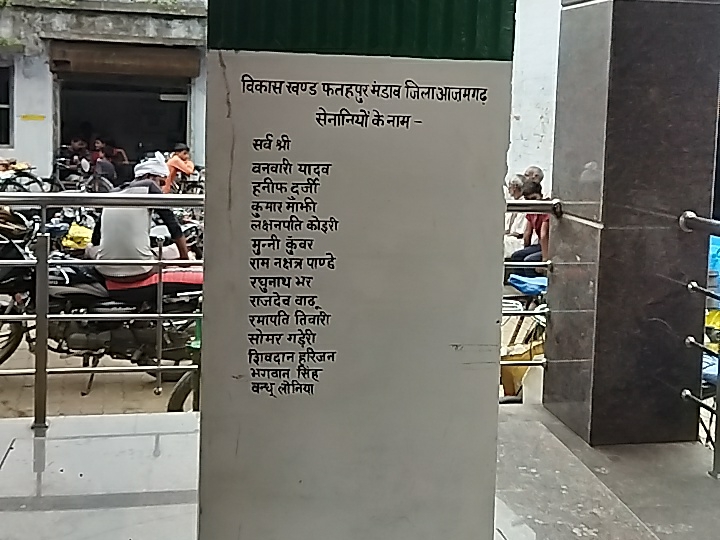 विकास खण्ड फतहपुर मंडाव जिला आजमगढ़
सेनानियों के नाम -
सर्व श्री
वनवारी यादव
हनीफ दर्जी
कुमार माझी
लक्षनपति कोइरी
मुन्नी कुंवर
राम नक्षत्र पाण्डे
रघुनाथ भर
राजदेव वाढू
रमापति तिवारी
सोमर गड़ेरी
शिवदान हरिजन
भगवान सिंह
वन्धू लोनिया